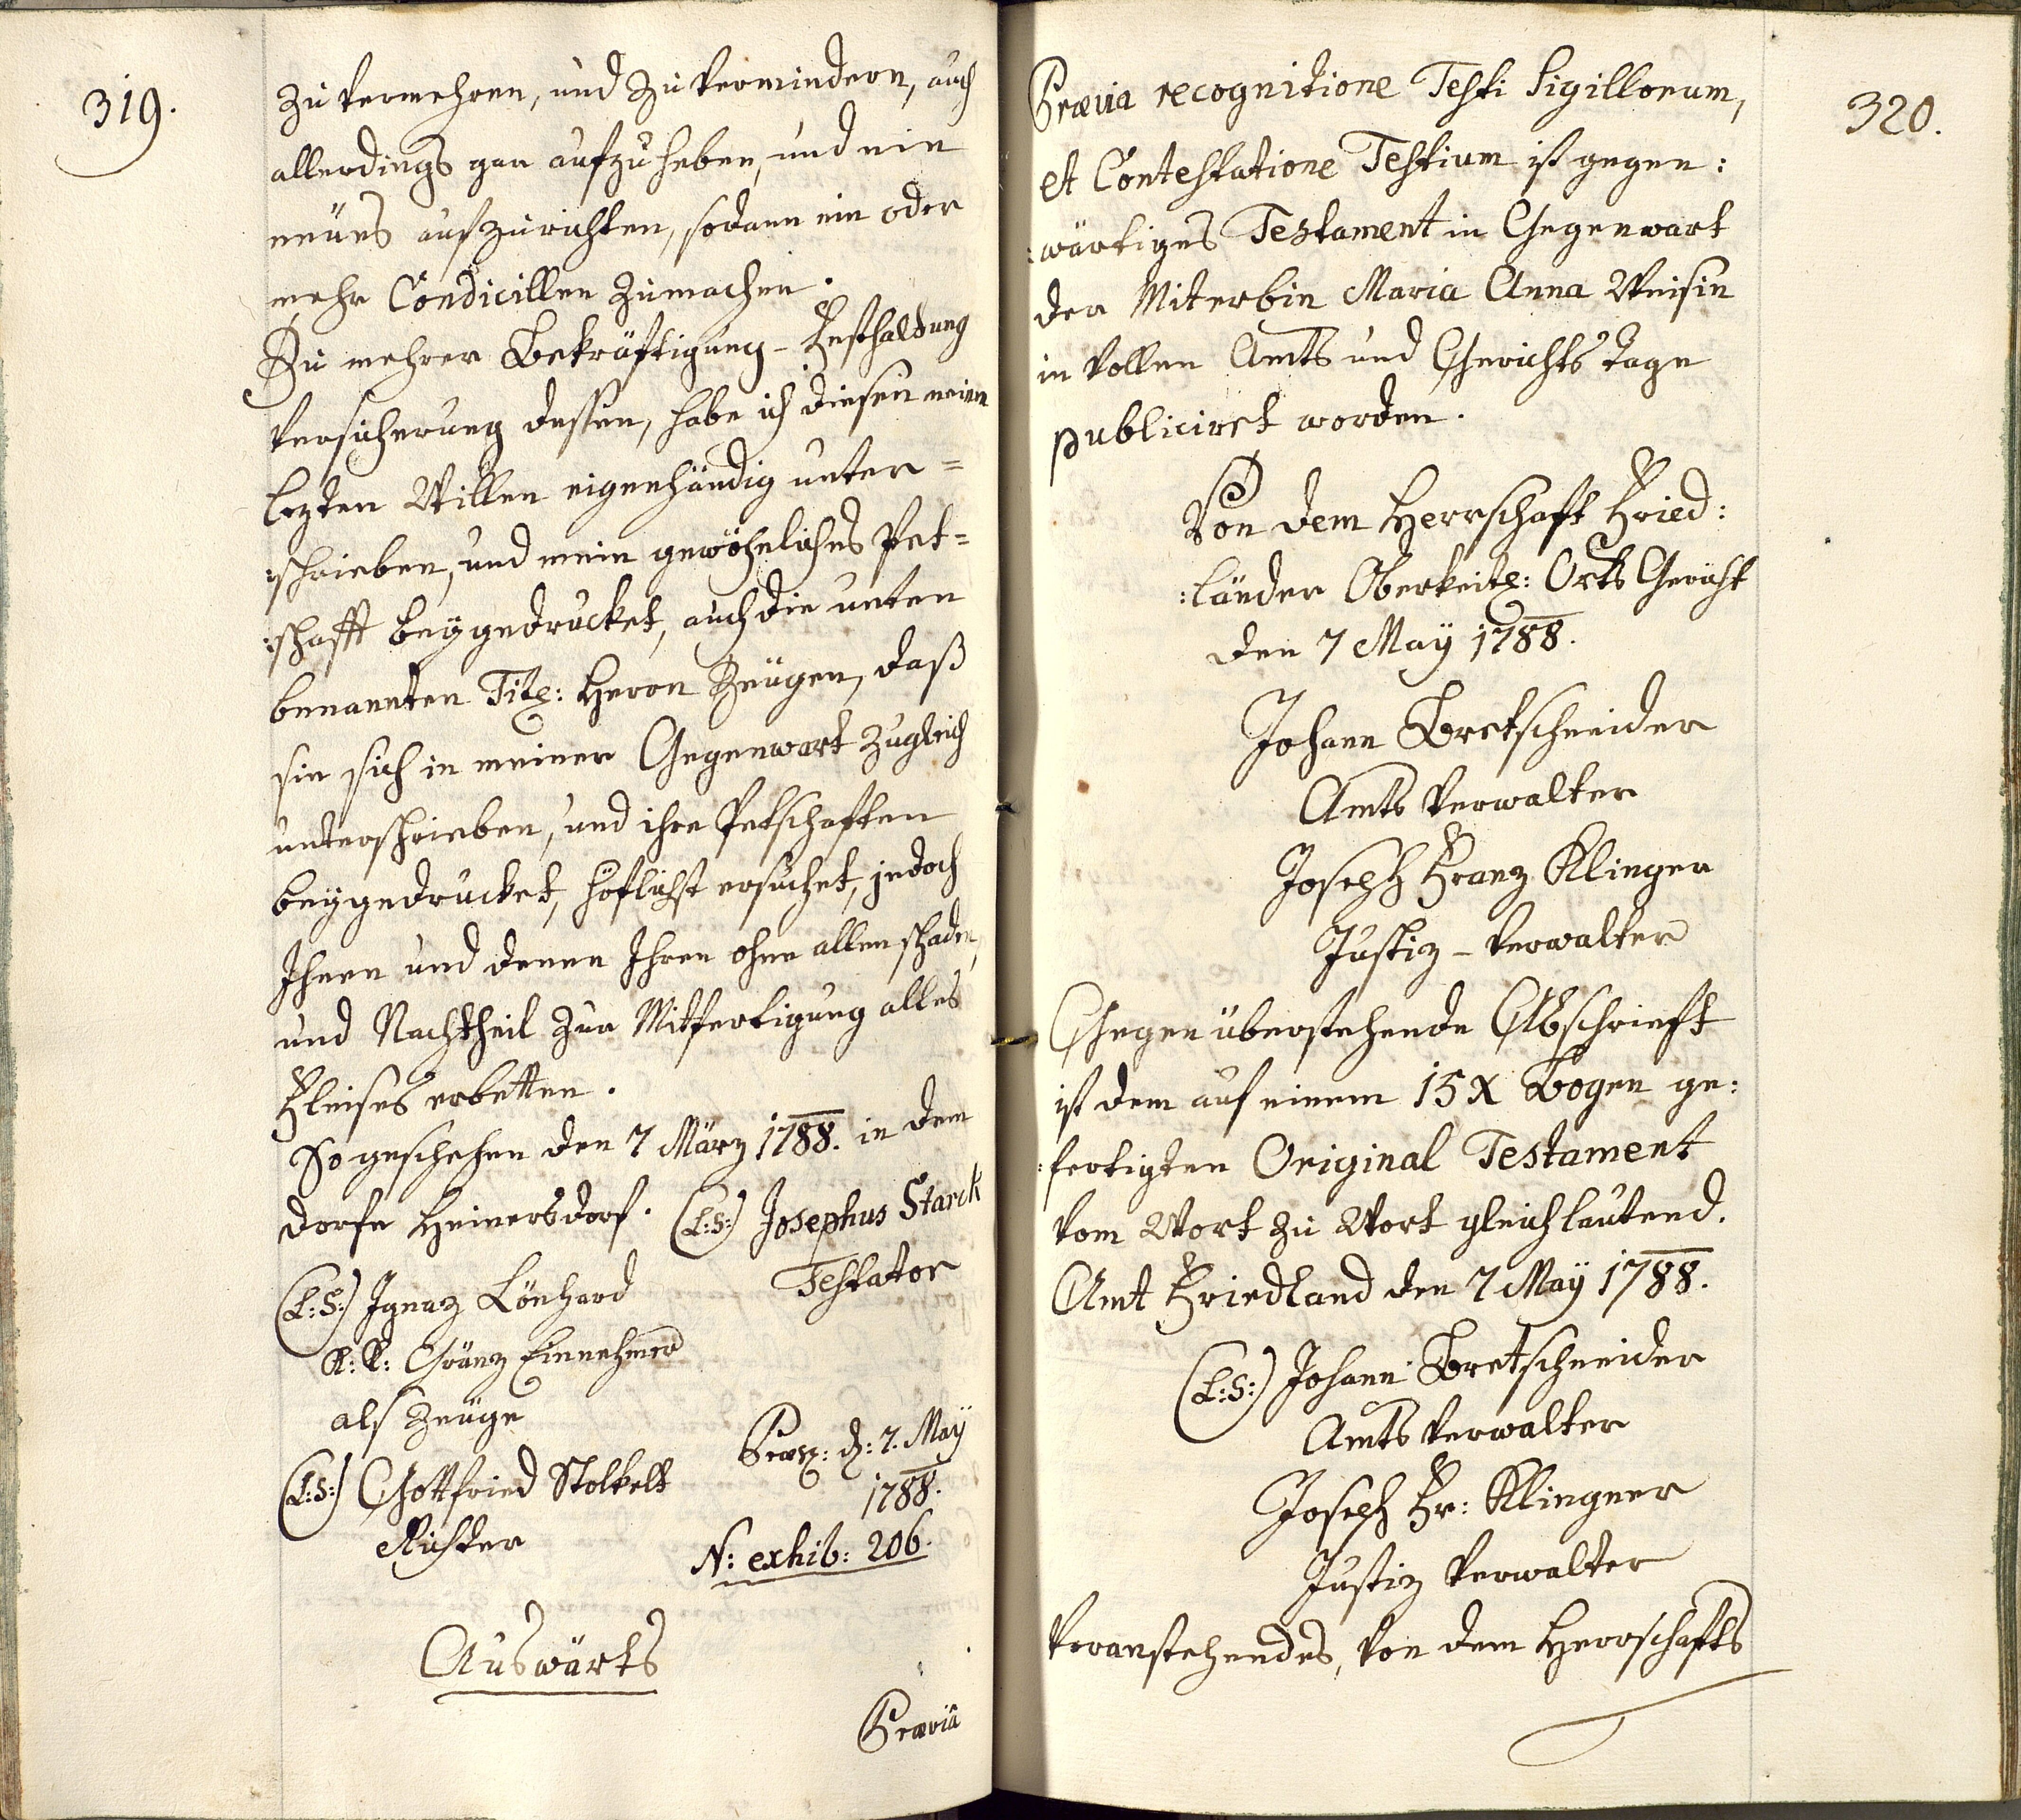 319.
zu vermehren, und zu vermindern, auch
allerdings gar aufzuheben, und ein
neües aufzurichten, sodann ein oder
mehr Condicillen zumachen.
Zu mehrer Bekräftigung – Festhaltung
Versicherung dessen, habe ich diesen meinen
lezten Willen eigenhändig unter=
:schrieben, und mein gewöhnliches Pet=
:schafft beygedrucket, auch die unten
benannten Titl: Herrn Zeügen, daß
sie sich in meiner Gegenwart zugleich
unterschrieben, und ihre Petschafften
beygedrucket, höflichst ersuchet, jedoch
Ihnen und denen Ihren ohne allen schaden,
und Nachtheil zur Mitfertigung alles
Fleises erbetten.
So geschehen den 7 März 1788. in dem
Dorfe Heinersdorf. (L:S:) Josephus Starck
Testator
(L:S:) Ignaz Lönhard
K: K: Gränz Einnehmer
als Zeüge
(L:S:) Gottfried Stolkelt
Richter
Præs: d: 7. May
1788.
N: exhib: 206.
Auswärts
Præviâ
320.
Prævia recognitione Testi Sigillorum,
et Contestatione Testium ist gegen:
:wärtiges Testament in Gegenwart
der Miterbin Maria Anna Weisin
in vollen Amts und Gerichts Tage
publiciret worden.
Von dem Herrschaft Fried:
:länder Oberkeitl: Orts Gericht
den 7 May 1788.
Johann Bretschneider
Amts Verwalter
Joseph Franz Klinger
Justiz – Verwalter
Gegenüberstehende Abschrieft
ist dem auf einem 15 X Bogen ge:
:fertigten Original Testament
vom Wort zu Wort gleichlautend.
Amt Friedland den 7 May 1788.
(L:S:) Johann Bretschneider
Amts Verwalter
Joseph Fr: Klingner
Justiz Verwalter
Voranstehendes, von dem Herrschafts